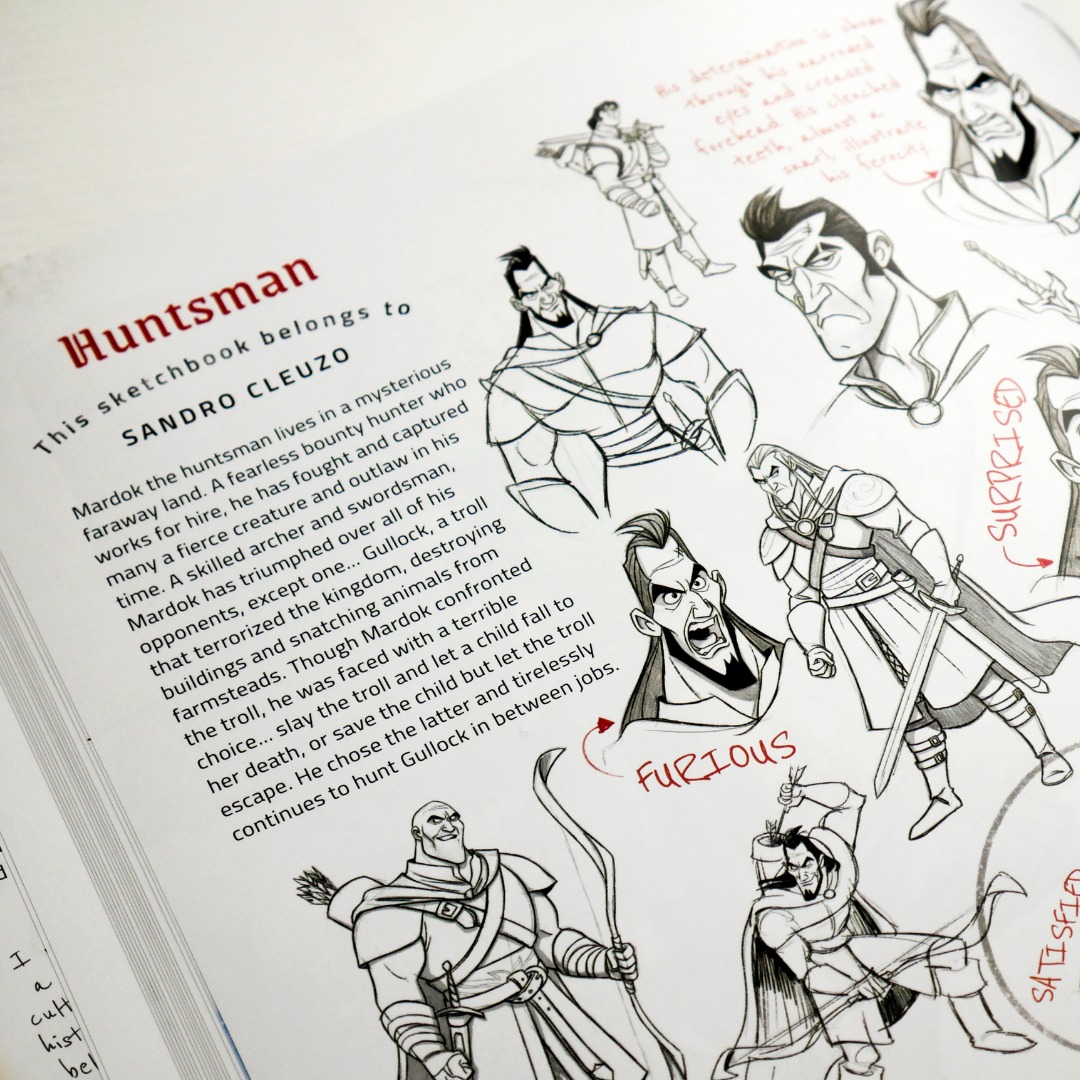 Huntsman
This sketchbook belongs to
SANDRO CLEUZO
Mardok the huntsman lives in a mysterious
faraway land. A fearless bounty hunter who
works for hire, he has fought and captured
many a fierce creature and outlaw in his
time. A skilled archer and swordsman,
Mardok has triumphed over all of his
opponents, except one... Gullock, a troll
that terrorized the kingdom, destroying
buildings and snatching animals from
farmsteads. Though Mardok confronted
the troll, he was faced with a terrible
choice... slay the troll and let a child fall to
her death, or save the child but let the troll
escape. He chose the latter and tirelessly
continues to hunt Gullock in between jobs.
His determination is shown
through his narrowed
eyes and creased
forehead. His clenched
teeth, almost a
snarl, illustrate
his ferocity.
SURPRISED
FURIOUS
SATISFIED
I
a
cult
hist
bel